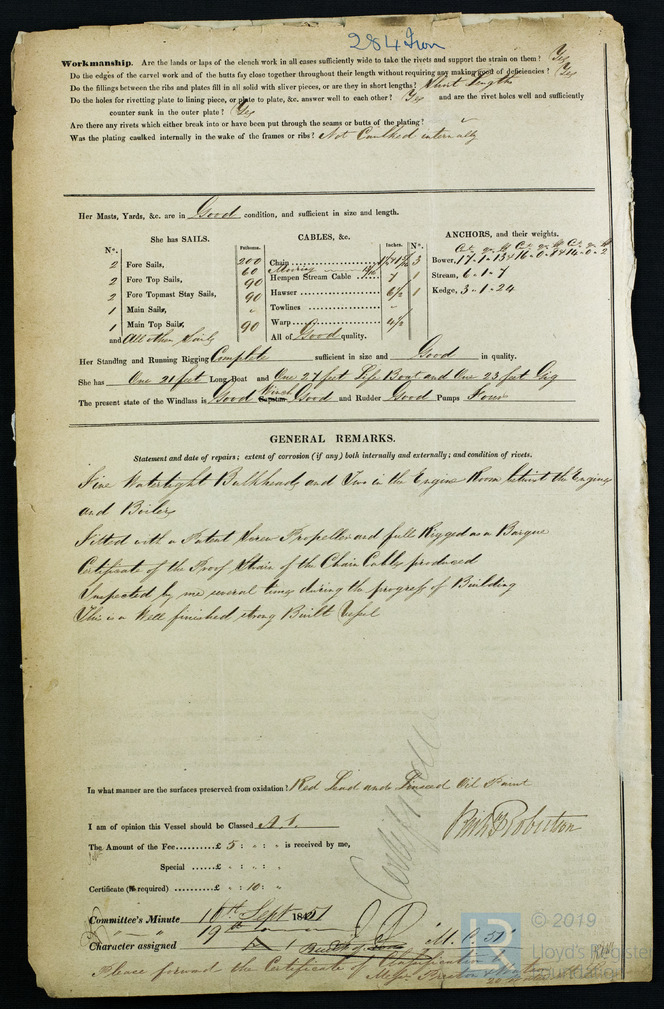 284 Iron
Workmanship. Are the lands or laps of the clench work in all cases sufficiently wide to take the rivets and support the strain on them? Yes
Do the edges of the carvel work and of the butts fay close together throughout their length without requiring any making good of deficiencies? Yes
Do the fillings between the ribs and plates fill in all solid with sliver pieces, or are they in short lengths? Short lengths
Do the holes for rivetting plate to lining piece, or plate to plate, &c. answer well to each other? Yes and are the rivet holes well and sufficiently
counter sunk in the outer plate? Yes
Are there any rivets which either break into or have been put through the seams or butts of the plating?
Was the plating caulked internally in the wake of the frames or ribs? Not Caulked internally
Her Masts, Yards, &c. are in Good condition, and sufficient in size and length.
She has SAILS.
CABLES, &c.
ANCHORS, and their weights.
No.
Fathoms.
Inches.
No.
Cwt. qr. lb Cwt. qr. lb Cwt. qr. lb
2 Fore Sails,
200 Chain
3 Bower, 17-1-13 16-0-14 14-0-2
60 Mooring
2 Fore Top Sails,
90 Hempen Stream Cable 7
1 Stream, 6-1-7
2 Fore Topmast Stay Sails,
90 Hawser 6½
1 Kedge, 3-1-24
1 Main Sails,
" Towlines "
1 Main Top Sails,
90 Warp 4½
and All other Sails
All of Good quality.
Her Standing and Running Rigging Complete sufficient in size and Good in quality.
She has One 21 feet Long Boat and One 27 feet Life Boat and One 23 feet Gig
The present state of the Windlass is Good Capstan Winch Good and Rudder Good Pumps Four
GENERAL REMARKS.
Statement and date of repairs; extent of corrosion (if any) both internally and externally; and condition of rivets.
Five Watertight Bulkheads and Two in the Engine Room betwixt the Engines
and Boilers
Fitted with a Patent Screw Propeller and full Rigged as a Barque
Certificate of the Proof Strain of the Chain Cables produced
Inspected by me several times during the progress of Building
This is a Well finished strong Built Vessel
In what manner are the surfaces preserved from oxidation? Red Lead and Linseed Oil Paint
I am of opinion this Vessel should be Classed A.1.
Robertson
The Amount of the Fee......£ 5 : " : " is received by me,
Special ......£ " : " : "
Certificate (if required) .........£ " : 10 : "
Committee's Minute 16th Sept 1851
19th
Character assigned A 1 "M.C. 51"
Please forward the Certificate of Classification to
Messrs
© 2019
Lloyd's Register
Foundation